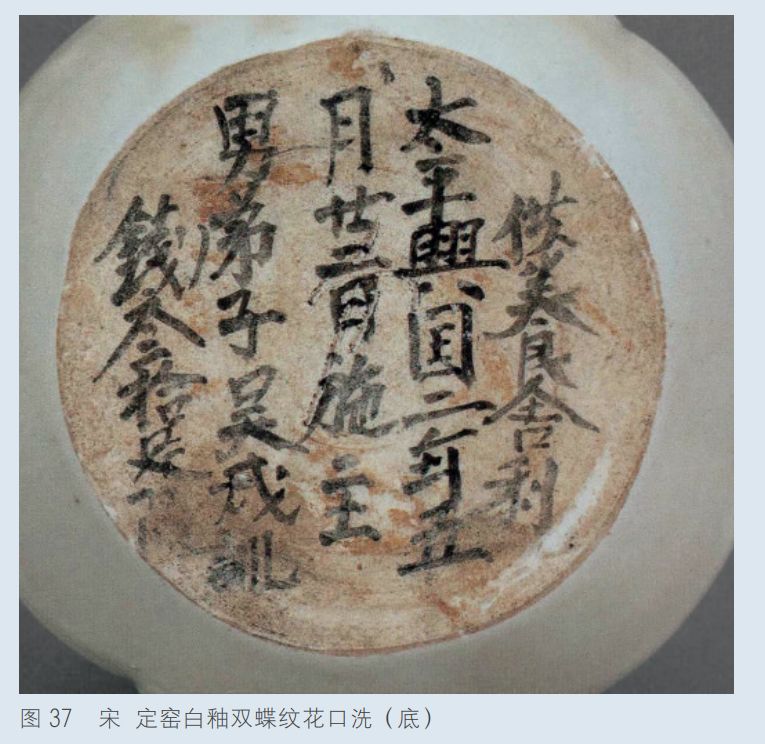 供養舍利
太平興国二年五
月廿二日施主
男弟子吴成訓
錢叁拾足
图 37 宋 定窑白釉双蝶纹花口洗（底）